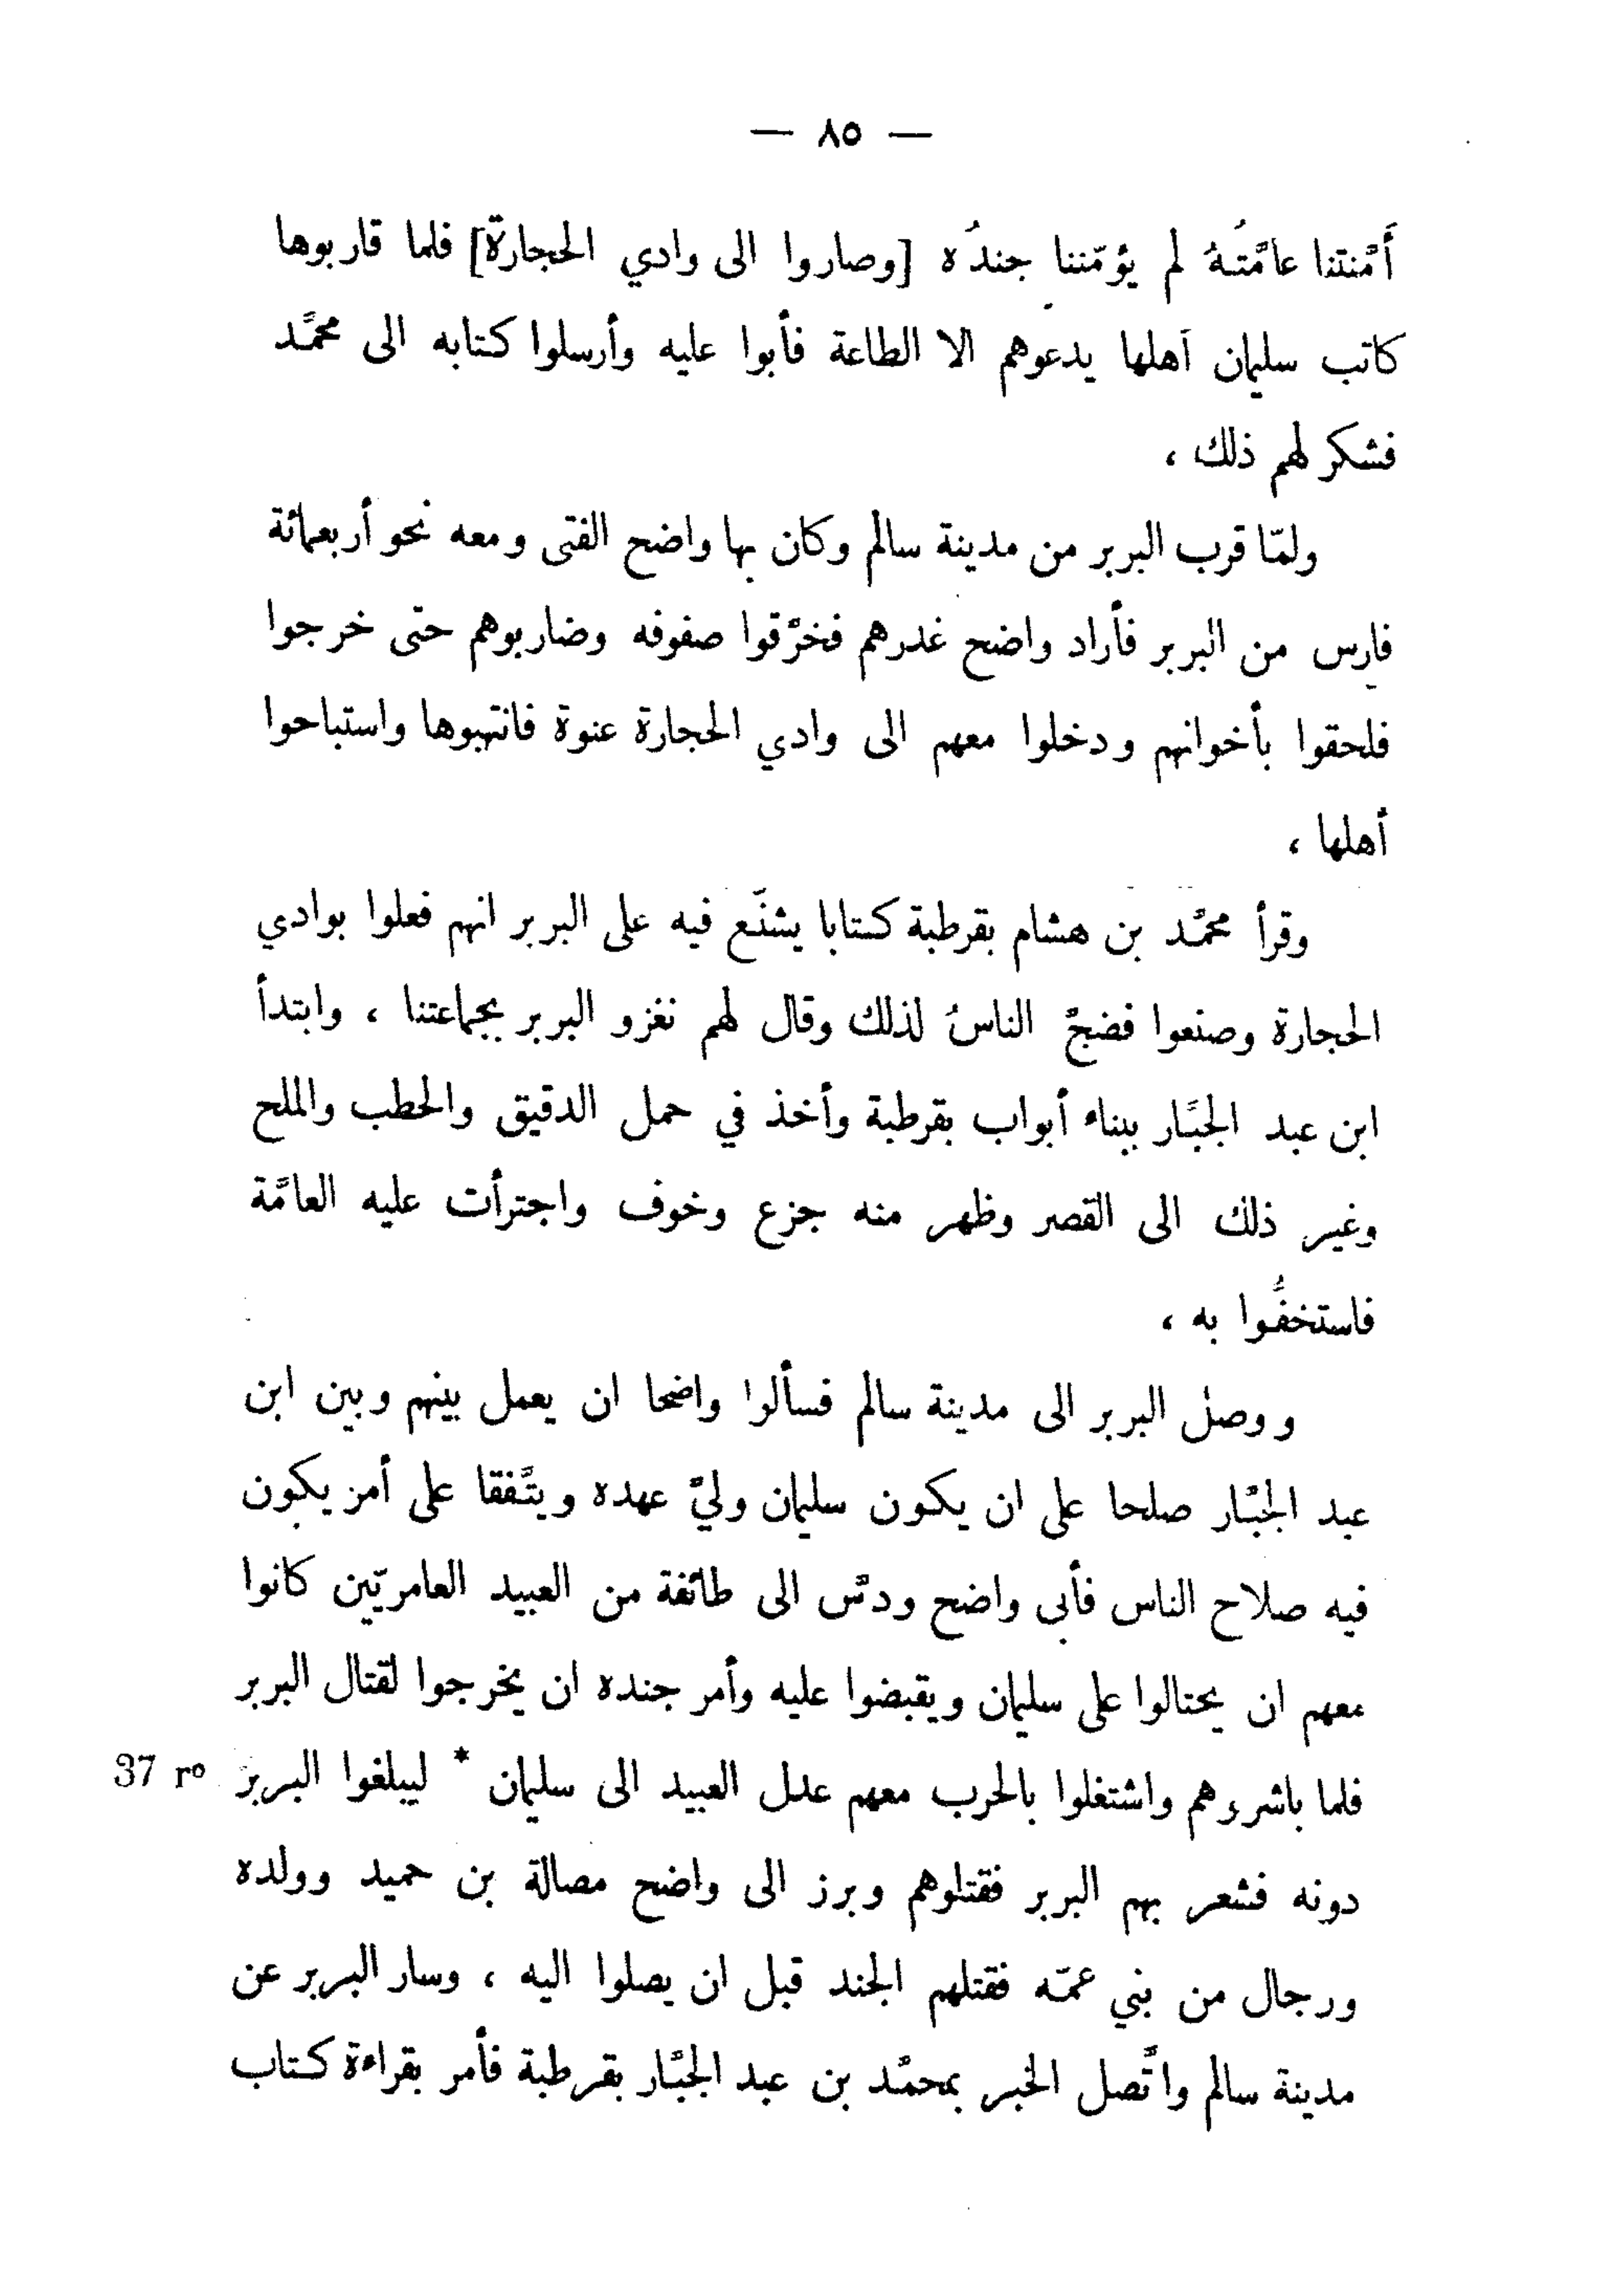 — ٨٥ —
أَمَّنتنا عامَّتُهُ لم يؤمّننا جندُه [وصاروا الى وادي الحجارة] فلما قاربوها
كاتب سليمان أهلها يدعوهم الا الطاعة فأبوا عليه وأرسلوا كتابه الى محمَّد
فشكر لهم ذلك ،
ولمّا قرب البربر من مدينة سالم وكان بها واضح الفتى ومعه نحو أربعمائة
فارس من البربر فأراد واضح غدرهم فخرَّقوا صفوفه وضاربوهم حتى خرجوا
فلحقوا بأخوانهم ودخلوا معهم الى وادي الحجارة عنوة فانتهبوها واستباحوا
أهلها ،
وقرأ محمَّد بن هشام بقرطبة كتابا يشنّع فيه على البربر انهم فعلوا بوادي
الحجارة وصنعوا فضجَّ الناسُ لذلك وقال لهم نغزو البربر بجماعتنا ، وابتدأ
ابن عبد الجبَّار ببناء أبواب بقرطبة وأخذ في حمل الدقيق والحطب والملح
وغير ذلك الى القصر وظهر منه جزع وخوف واجترأت عليه العامَّة
فاستخفُّوا به ،
ووصل البربر الى مدينة سالم فسألوا واضحا ان يعمل بينهم وبين ابن
عبد الجبَّار صلحا على ان يكون سليمان وليَّ عهده ويتَّفقا على أمر يكون
فيه صلاح الناس فأبى واضح ودسَّ الى طائفة من العبيد العامريّين كانوا
معهم ان يحتالوا على سليمان ويقبضوا عليه وأمر جنده ان يخرجوا لقتال البربر
فلما باشروهم واشتغلوا بالحرب معهم عدل العبيد الى سليمان * ليبلغوا البربر 37 rº
دونه فشعر بهم البربر فقتلوهم وبرز الى واضح مصالة بن حميد وولده
ورجال من بني عمّه فقتلهم الجند قبل ان يصلوا اليه ، وسار البربر عن
مدينة سالم واتَّصل الخبر بمحمَّد بن عبد الجبَّار بقرطبة فأمر بقراءة كتاب